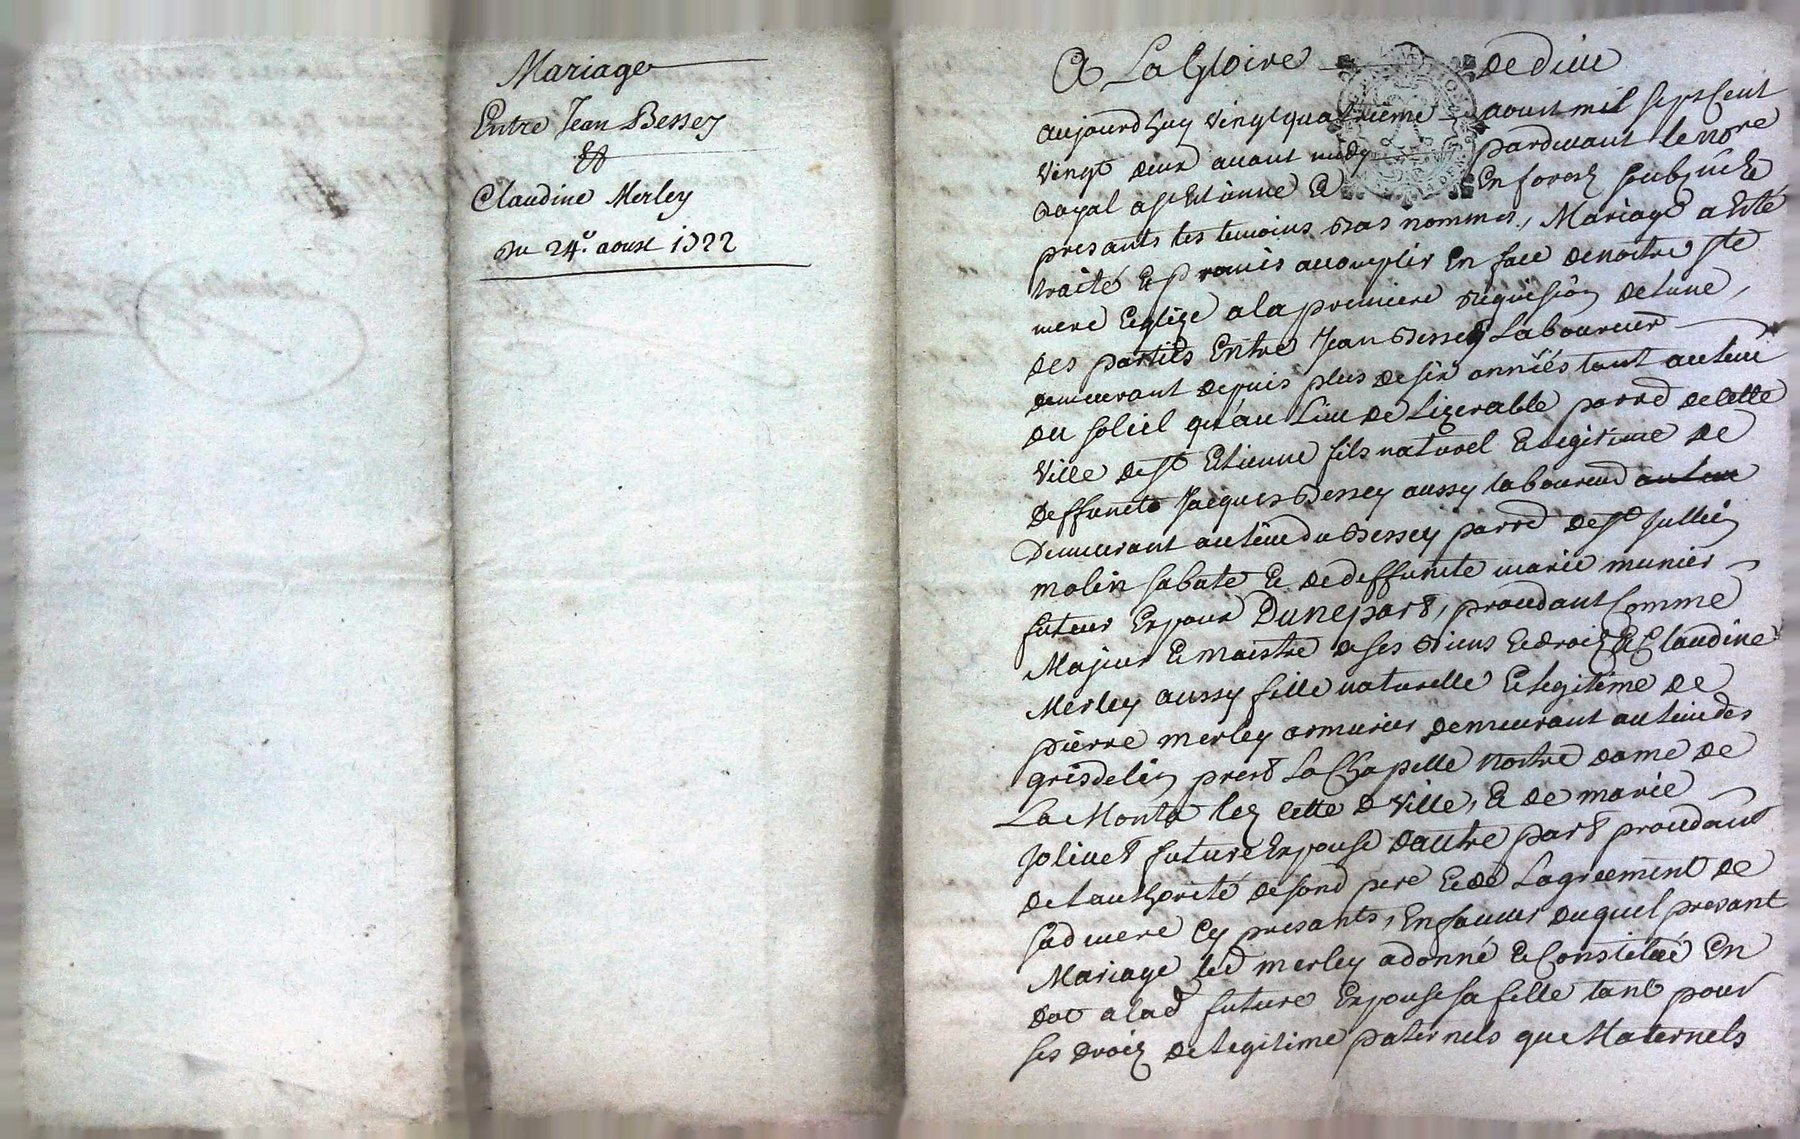 Mariage
Entre Jean Bessey
Et
Claudine Merley
du 24e. aoust 1722
A La Gloire de dieu
aujourdhuy vingt quatrieme aoust mil sept cent
vingt deux avant midy pardevant le nore
Royal a st Etienne en forest soubsné &
presants les temoins bas nommes, Mariage a Esté
traité & promis accomplir En face de nostre ste
mere Eglize a la premiere requision de lune
des parties Entre Jean Bessey Laboureur
demeurant depuis plus de six années tant au lieu
du soliel qu'au Lieu de Lizerable parred de cette
ville de st Etienne fils naturel & legitime de
deffunct Jacques Bessey aussy laboureur au lieu
demeurant au lieu du Bessey parred de st Jullien
molin sabate & de deffuncte marie munier
futeur Expoux Dune part, procedant Comme
Majeur & maistre de ses Biens & droiz & Claudine
Merley aussy fille naturelle & legitime de
pierre merley armurier demeurant au lieu des
grisdelin prest La Chapelle nostre dame de
La Monta lez cette d ville, & de marie
Jolivet future Expouse dautre part procedant
de lauthorité de sond pere & de Lagreement de
sad mere Cy presants, En faveur duquel presant
Mariage led merley a donné & Constitué En
dot a lad future Expouse sa fille tant pour
ses droiz de legitime paternels que Maternels